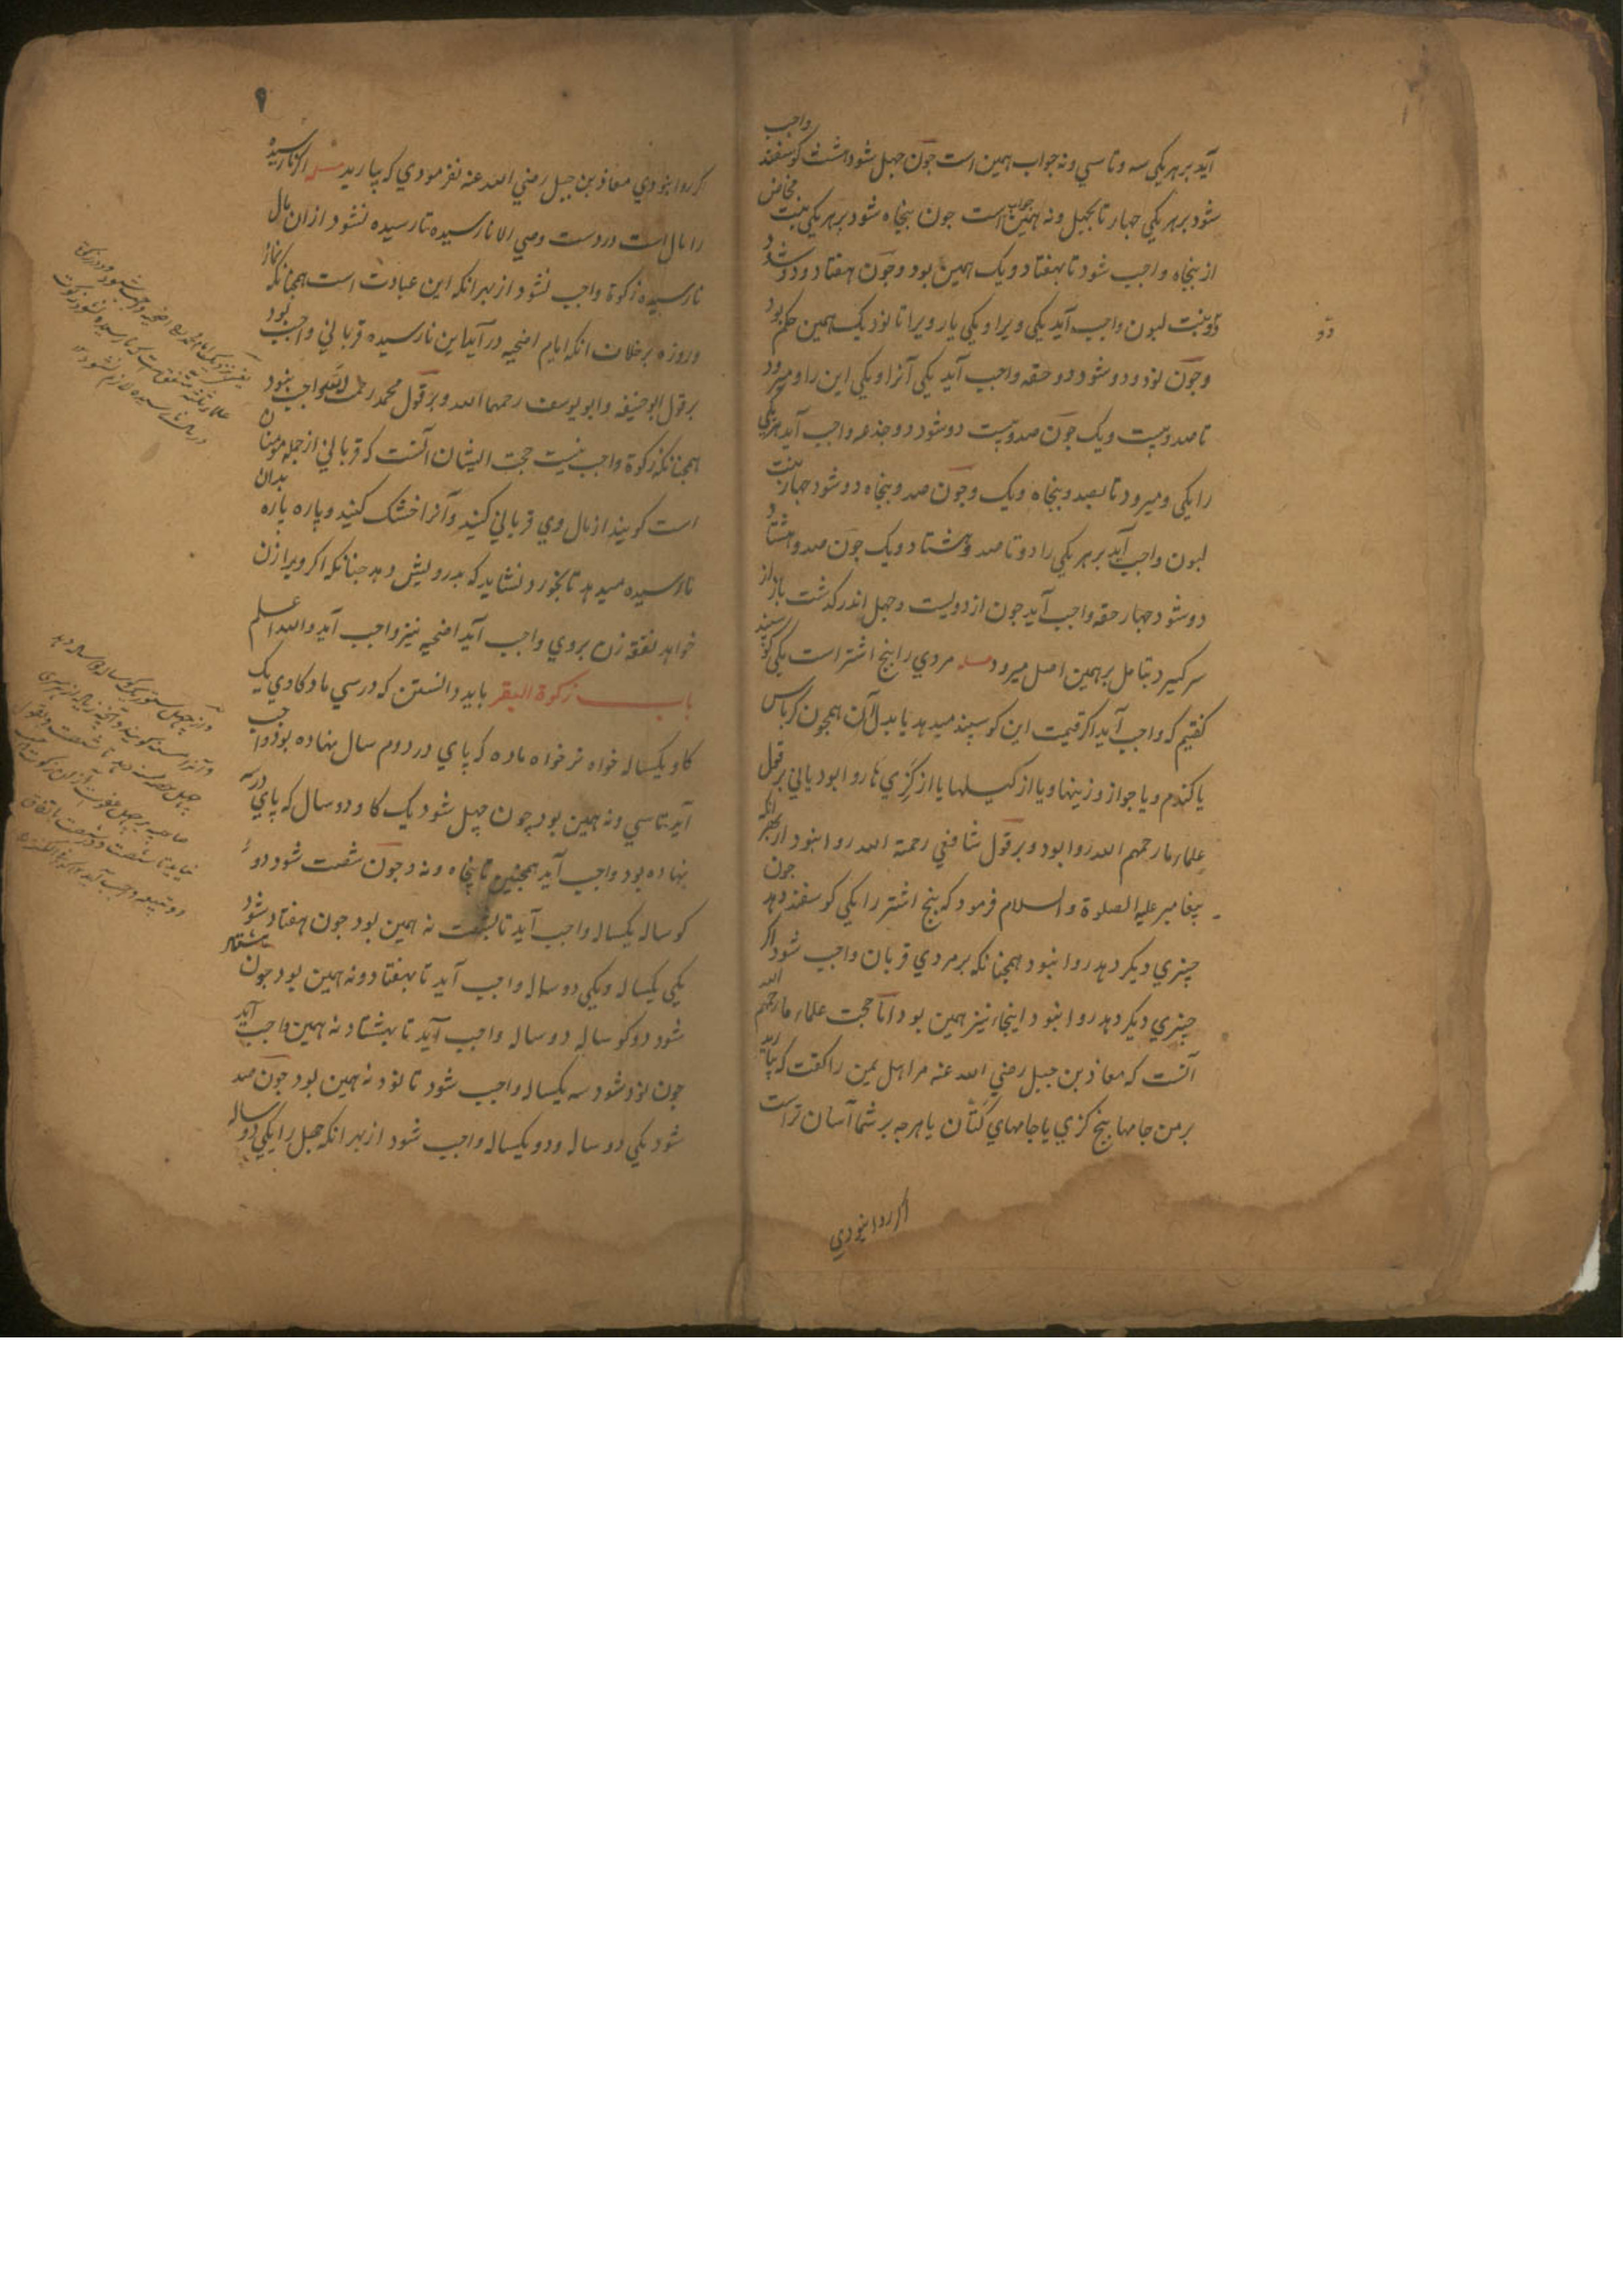 آید بر هر یکی سه و تا سی و نه جواب همین است جون جهل شود هشت کوسفند واجب
شود بر هر یکی جهار تا بجهل و نه همین جواب است جون پنجاه شود بر هر یکی بنت مخاض
از پنجاه واجب شود تا بهفتاد و یک همین بود و جون هفتاد و دو شد
دو بنت لبون واجب آید یکی ویرا و یکی یار ویرا تا نود یک همین حکم بود
و جون نود و دو شود دو حقه واجب آید یکی آنرا و یکی این را و میرود
تا صد و بیست و یک جون صد و بیست دو شود دو جذعه واجب آید هر یکی
را یکی و میرود تا بصد و پنجاه و یک و جون صد و پنجاه دو شود جهار بنت
لبون واجب آید بر هر یکی را دو تا صد و هشتاد و یک جون صد و هشتاد
دو شود جهار حقه واجب آید جون از دویست و جهل اندر کذشت باز از
سر کیرد بتامل بر همین اصل میرود مسله مردی را پنج اشتر است یکی کوسپند
کفتیم که واجب آید اکر قیمت این کوسپند میدهد یا بدل آن همجون کرباس
یا کندم و یا جواز وزینها و یا از کیلها یا از کزی ها روا بود یا نی بر قول
علماء ما رحمهم الله روا بود و بر قول شافعی رحمة الله روا نبود از بهر انکه
پیغامبر علیه الصلوة والسلام فرمود که پنج اشتر را یکی کوسفند دهد جون
چیزی دیکر دهد روا نبود همجنانکه بر مردی قربان واجب شود اکر
چیزی دیکر دهد روا نبود اینجا نیز همین بود اما حجت علماء ما رحمهم الله
آنست که معاذ بن جبل رضی الله عنه مر اهل یمن را کفت که بیارید
بر من جامها پنج کزی یا جامهای کتان یا هرجه بر شما آسان تر است
اکر روا نبودی
دو
۹
اکر روا نبودی معاذ بن جبل رضی الله عنه نفرمودی که بیارید مسله اکر نارسیده
را مال است در دست وصی الا نارسیده تا رسیده نشود از آن مال
نارسیده زکوة واجب نشود از بهر انکه این عبادت است همجنانکه نماز
و روزه بر خلاف انکه ایام اضحیه در آید این نارسیده قربانی واجب بود
بر قول ابو حنیفه و ابو یوسف رحمهما الله و بر قول محمد رحمه الله واجب نبود
همجنانکه زکوة واجب نیست حجت ایشان آنست که قربانی از جمله مومنان
است کوسپند از مال وی قربانی کنید و آنرا خشک کنید و پاره پاره بدان
نارسیده میدهد تا بخورد و نشاید که بدرویش دهد جنانکه اکر ویرا زن
خواهد نفقه زن بر وی واجب آید اضحیه نیز واجب آید والله اعلم
باب زکوة البقر باید دانستن که در سی ماده کاوی یک
کاو یکساله خواه نر خواه ماده که پای در دوم سال نهاده بود واجب
آید تا سی و نه همین بود چون چهل شود یک کاو دو سال که پای در سه
نهاده بود واجب آید همجنین تا پنجاه و نه و جون شصت شود دو
کوساله یکساله واجب آید تا بشصت نه همین بود جون هفتاد شود
یکی یکساله و یکی دو ساله واجب آید تا بهفتاد و نه همین بود جون هشتاد
شود دو کوساله دو ساله واجب آید تا بهشتاد نه همین واجب آید
جون نود شود سه یکساله واجب شود تا نود نه همین بود جون صد
شود یکی دو ساله و دو یکساله واجب شود از بهر انکه جهل را یکی دو ساله